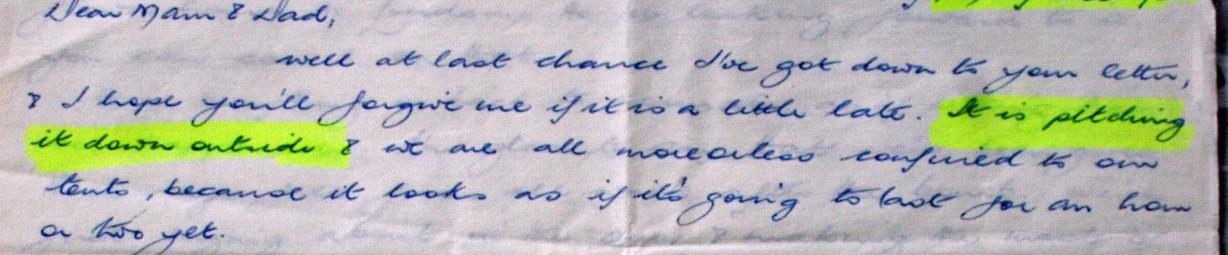 Dear Mam & Dad,
well at last chance I've got down to your letter,
& I hope you'll forgive me if it is a little late. It is pitching
it down outside & we are all moreorless confined to our
tents, because it looks as if it's going to last for an hour
or two yet.